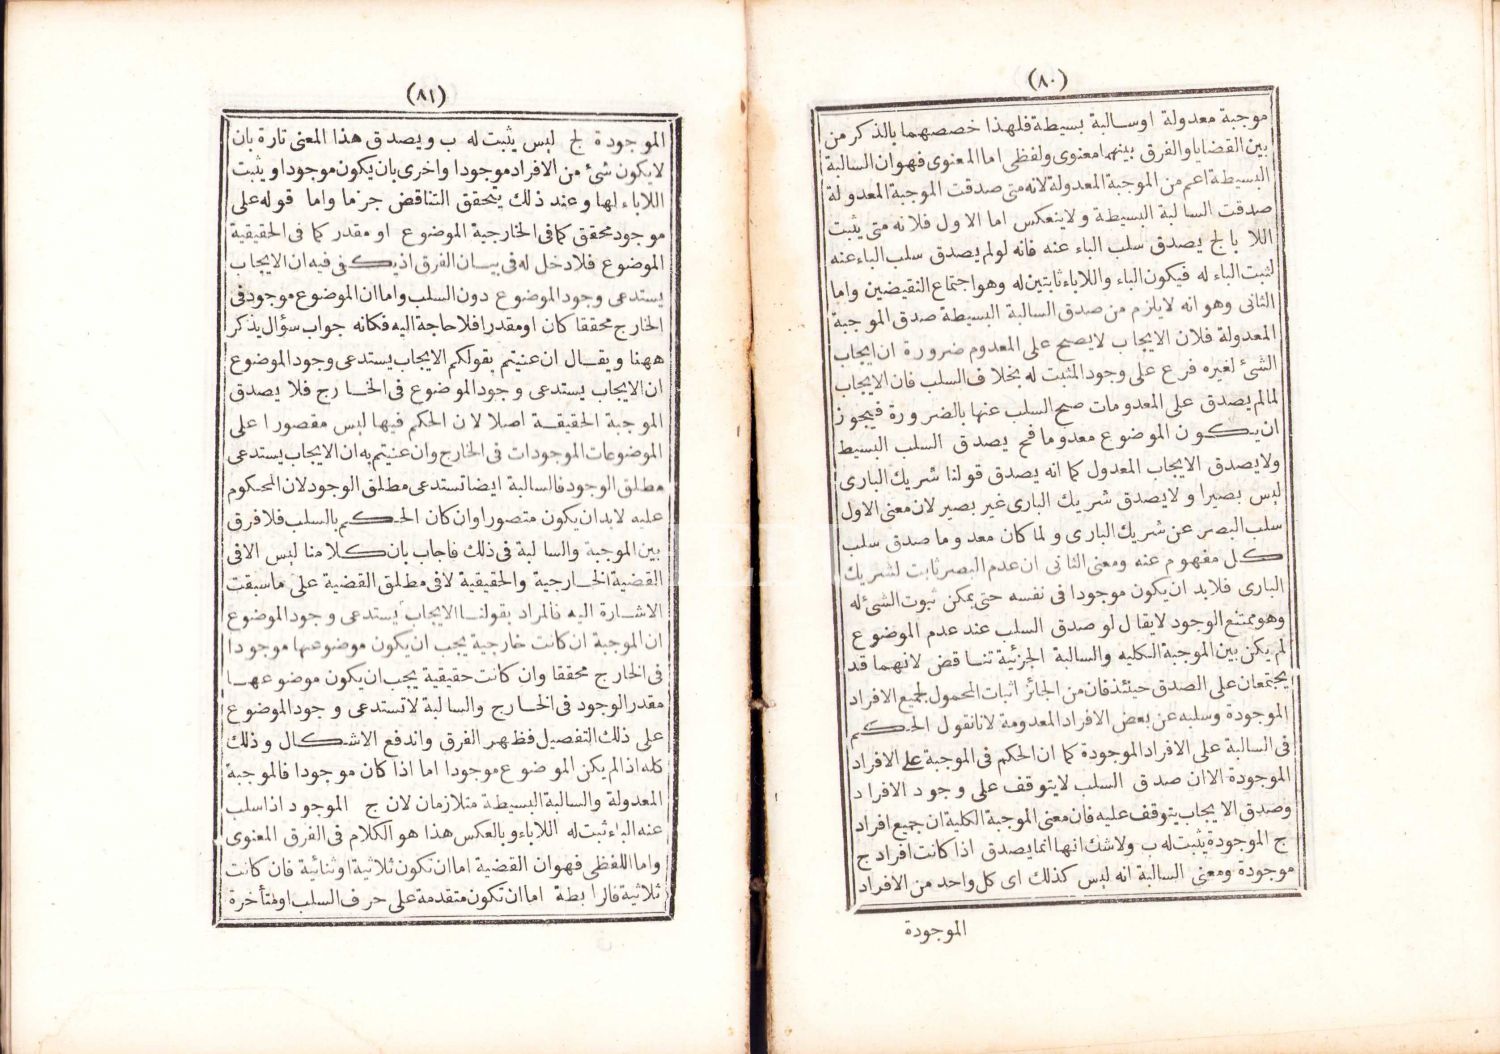 (٨٠)
موجبة معدولة اوسالبة بسيطة فلهذا خصصهما بالذكر من
بين القضايا والفرق بينهما معنوى ولفظى اما المعنوى فهوان السالبة
البسيطة اعم من الموجبة المعدولة لانه متى صدقت الموجبة المعدولة
صدقت السالبة البسيطة ولاينعكس اما الاول فلانه متى يثبت
اللا بالج يصدق سلب الباء عنه فانه لولم يصدق سلب الباءعنه
لثبت الباء له فيكون الباء واللاباءثابتين له وهواجتماع النقيضين واما
الثانى وهو انه لايلزم من صدق السالبة البسيطة صدق الموجبة
المعدولة فلان الايجاب لايصح على المعدوم ضرورة ان ايجاب
الشئ لغيره فرع على وجود المثبت له بخلاف السلب فان الايجاب
لمالم يصدق على المعدومات صح السلب عنها بالضرورة فيجوز
ان يكون الموضوع معدوما فح يصدق السلب البسيط
ولايصدق الايجاب المعدول كما انه يصدق قولنا شريك البارى
ليس بصيرا ولايصدق شريك البارى غير بصير لان معنى الاول
سلب البصر عن شريك البارى ولما كان معدوما صدق سلب
كل مفهوم عنه ومعنى الثانى ان عدم البصر ثابت لشريك
البارى فلابد ان يكون موجودا فى نفسه حتى يمكن ثبوت الشئ له
وهوممتنع الوجود لايقال لو صدق السلب عند عدم الموضوع
لم يكن بين الموجبة الكليه والسالبة الجزئية تناقض لانهما قد
يجتمعان على الصدق حينئذ فان من الجائز اثبات المحمول لجميع الافراد
الموجودة وسلبه عن بعض الافراد المعدومة لانانقول الحكم
فى السالبة على الافراد الموجودة كما ان الحكم فى الموجبة على الافراد
الموجودة الاان صدق السلب لايتوقف على وجود الافراد
وصدق الايجاب يتوقف عليه فان معنى الموجبة الكلية ان جميع افراد
ج الموجودة يثبت له ب ولاشك انها انما يصدق اذا كانت افراد ج
موجودة ومعنى السالبة انه ليس كذلك اى كل واحد من الافراد
الموجودة
(٨١)
الموجودة لج ليس يثبت له ب ويصدق هذا المعنى تارة بان
لايكون شئ من الافراد موجودا واخرى بان يكون موجودا ويثبت
اللاباء لها وعند ذلك يتحقق التناقض جزما واما قوله على
موجود محقق كمافى الخارجية الموضوع او مقدر كما فى الحقيقية
الموضوع فلادخل له فى بيان الفرق اذيكفى فيه ان الايجاب
يستدعى وجود الموضوع دون السلب واما ان الموضوع موجود فى
الخارج محققا كان اومقدرا فلاحاجة اليه فكانه جواب سؤال يذكر
ههنا ويقال ان عنيتم بقولكم الايجاب يستدعى وجود الموضوع
ان الايجاب يستدعى وجود الموضوع فى الخارج فلا يصدق
الموجبة الحقيقة اصلا لان الحكم فيها ليس مقصورا على
الموضوعات الموجودات فى الخارج وان عنيتم به ان الايجاب يستدعى
مطلق الوجود فالسالبة ايضا تستدعى مطلق الوجود لان المحكوم
عليه لابد ان يكون متصورا وان كان الحكم بالسلب فلافرق
بين الموجبة والسالبة فى ذلك فاجاب بان كلامنا ليس الافى
القضية الخارجية والحقيقية لافى مطلق القضية على ماسبقت
الاشارة اليه فالمراد بقولنا الايجاب يستدعى وجود الموضوع
ان الموجبة ان كانت خارجية يجب ان يكون موضوعها موجودا
فى الخارج محققا وان كانت حقيقية يجب ان يكون موضوعها
مقدر الوجود فى الخارج والسالبة لاتستدعى وجود الموضوع
على ذلك التفصيل فظهر الفرق واندفع الاشكال وذلك
كله اذالم يكن الموضوع موجودا اما اذا كان موجودا فالموجبة
المعدولة والسالبة البسيطة متلازمان لان ج الموجود اذاسلب
عنه الباء ثبت له اللاباء وبالعكس هذا هو الكلام فى الفرق المعنوى
واما اللفظى فهوان القضية اماان تكون ثلاثية اوثنائية فان كانت
ثلاثية فالرابطة اماان تكون متقدمة على حرف السلب اومتأخرة